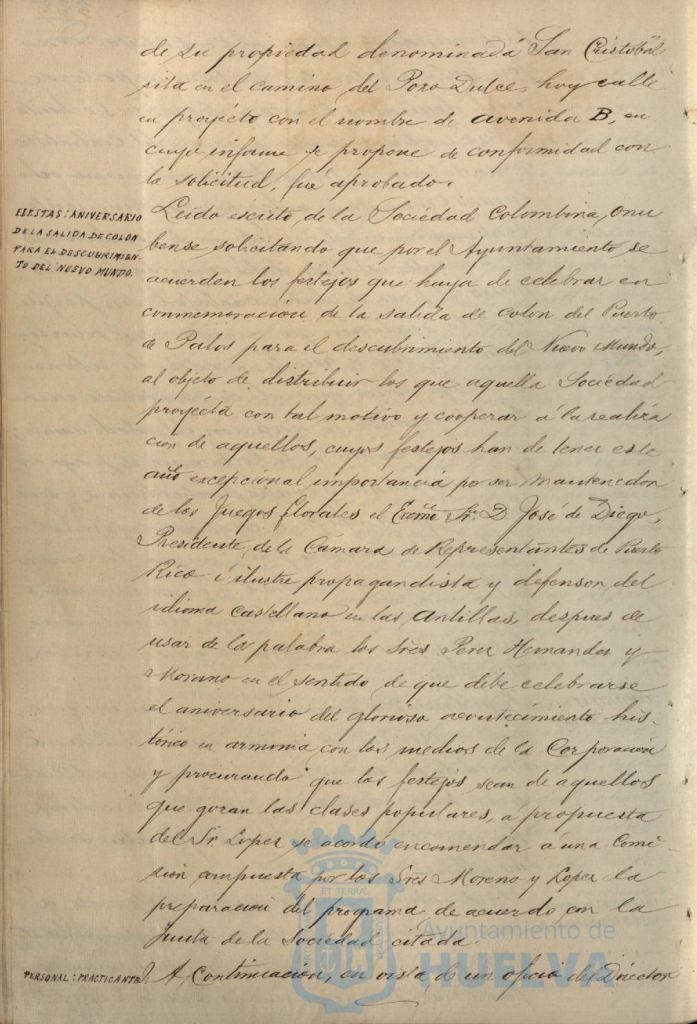 de su propiedad denominada San Cristóbal
sita en el camino del Pozo Dulce, hoy calle
en proyecto con el nombre de avenida B, en
cuyo informe se propone de conformidad con
la solicitud, fué aprobado.
FIESTAS: ANIVERSARIO
DE LA SALIDA DE COLON
PARA EL DESCUBRIMIEN-
TO DEL NUEVO MUNDO.
Leido escrito de la Sociedad Colombina Onu
bense solicitando que por el Ayuntamiento se
acuerden los festejos que haya de celebrar en
conmemoración de la salida de Colon del Puerto
de Palos para el descubrimiento del Nuevo Mundo,
al objeto de distribuir los que aquella Sociedad
proyecta con tal motivo y cooperar á la realiza
cion de aquellos, cuyos festejos han de tener este
año excepcional importancia por ser mantenedor
de los Juegos florales el Excmo Sr. D. José de Diego,
Presidente de la Cámara de Representantes de Puerto
Rico é ilustre propagandista y defensor del
idioma Castellano en las Antillas, despues de
usar de la palabra los Sres Perez Hernandez y
Moreno en el sentido de que debe celebrarse
el aniversario del glorioso acontecimiento his-
tórico en armonia con los medios de la Corporación
y procurando que los festejos sean de aquellos
que gozan las clases populares, á propuesta
del Sr Lopez se acordó encomendar á una Comi-
sion compuesta por los Sres Moreno y Lopez la
preparación del programa de acuerdo con la
Junta de la Sociedad citada.
PERSONAL: PRACTICANTE
A Continuación, en vista de un oficio del Director
ET TERRÆ
Ayuntamiento de
HUELVA